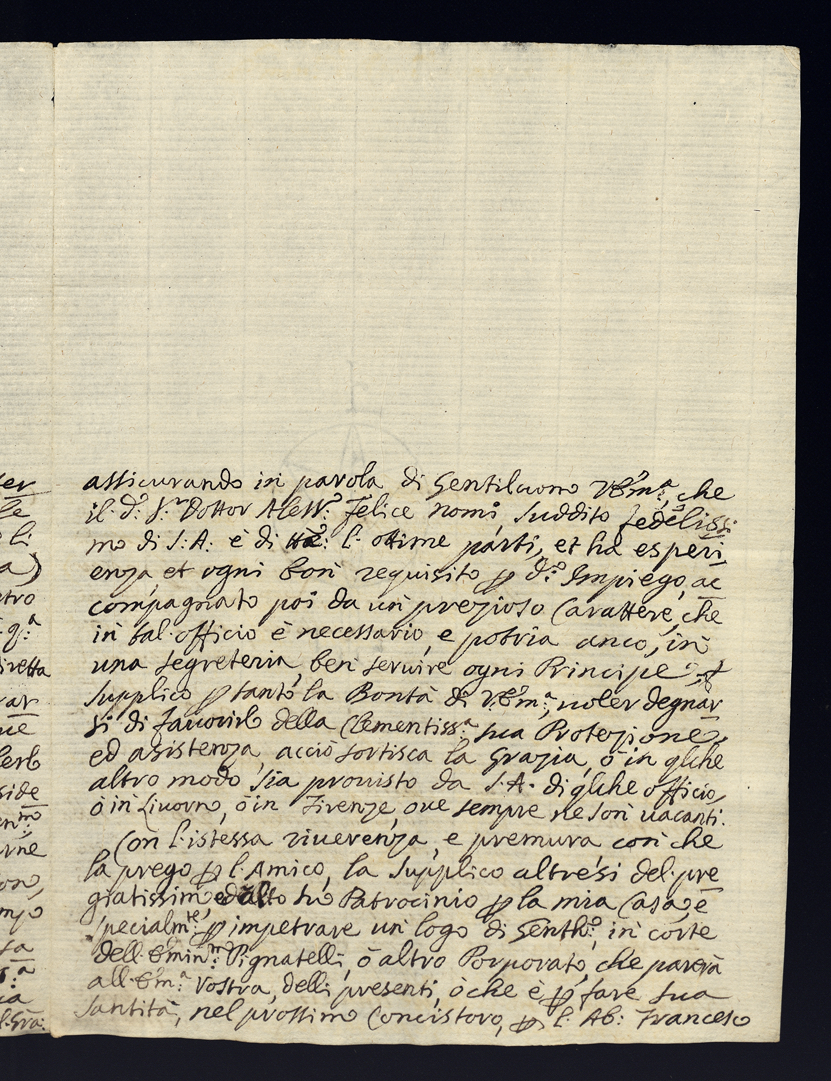 assicurando in parola di Gentiluomo V. Em.ᵃ, che
il d.º S.ʳ Dottor Aless.º Felice Nomi, suddito fedeliss:
mo di S: A: è di l: ottime parti, et hà esperi,
enza, et ogni bon requisito ꝑ d.º Impiego, ac
compagnato poi da un prezioso Carattere, che
in tal officio è necessario, e potria anco, in
una segreteria ben servire ogni Principe,
supplico ꝑ tanto la Bontà di V. Em.ᵃ, voler degnar
si di favorirlo della Clementiss.ᵃ sua Protezione,
ed assistenza, acciò sortisca la Grazia, ò in qlche
altro modo sia provisto da S. A. di qlche officio,
ò in Livorno, ò in Firenze, ove sempre ne son vacanti.
Con l'istessa riverenza, e premura con che
la prego ꝑ l'Amico, la supplico altresì del pre
giatissimo ed alto suo Patrocinio ꝑ la mia Casa, e
specialm.ᵗᵉ ꝑ impetrare un logo di Gentilh.º, in corte
dell' Emin.ᵐᵒ Pignatelli, ò altro Porporato, che parerà
all' Em.ᵃ Vostra, delli presenti, ò che è ꝑ fare sua
Santità, nel prossimo Concistoro, ꝑ l: Ab: Francesco
ter
a)
tro
q.ᵃ
iretta
var
side
rne
ono,
sa